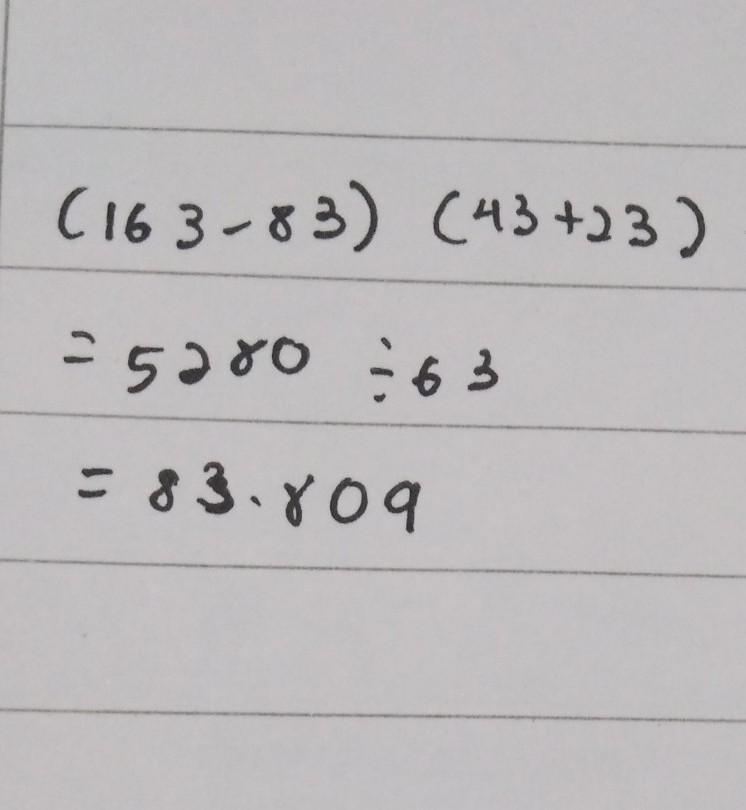 (163-83) (43+23)
= 5280 ÷ 63
= 83.809